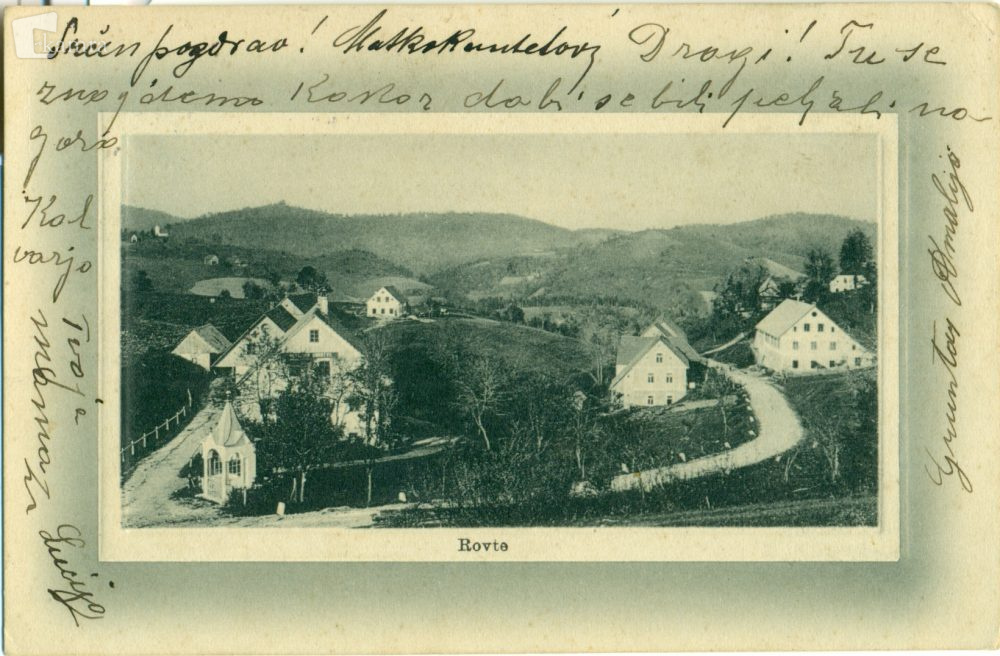 Srčen pozdrav! Matko Dragi! Tu se
znajdemo Kakor da bi se bili peljali na
goro
Kal
varjo
Tvoja
mamaza
Lucija
Gruntay Amalija
Rovte